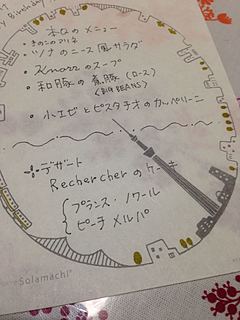 Birthday
本日のメニュー
・きのこのマリネ
・ツナのニース風サラダ
・Knorrのスープ
・和豚の煮豚(ロース)
(BIG BEANS)
・小エビとピスタチオのカッペリーニ
デザート
Rechercherのケーキ
プランス・ノワール
ピーチ メルバ
Solamachi